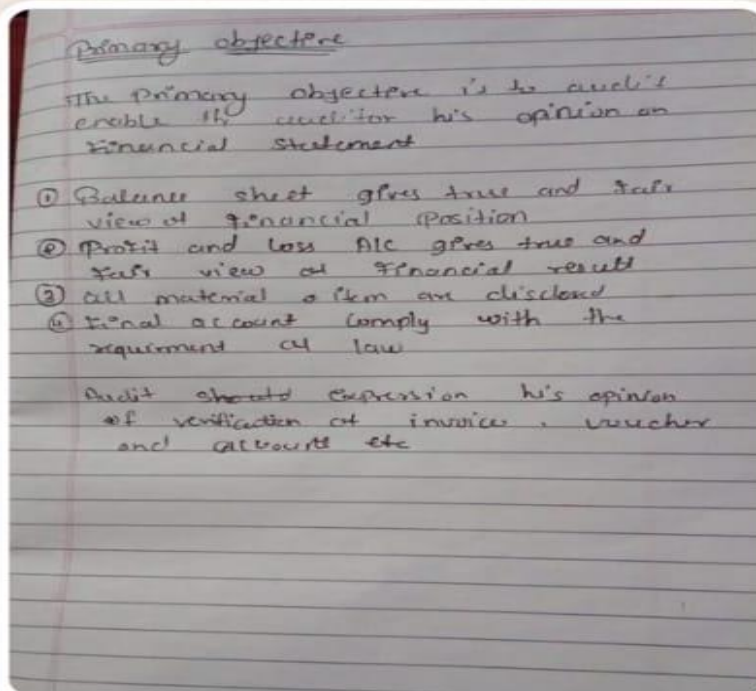 Primary objective
The Primary objective is to audit
enable the auditor his opinion on
Financial Statement
① Balance sheet gives true and fair
view of financial Position
② Profit and Loss A/c gives true and
fair view of Financial result
③ all material item are disclosed
④ Final account Comply with the
requirment of law
Audit should expression his opinion
of verification of invoice, voucher
and accounts etc